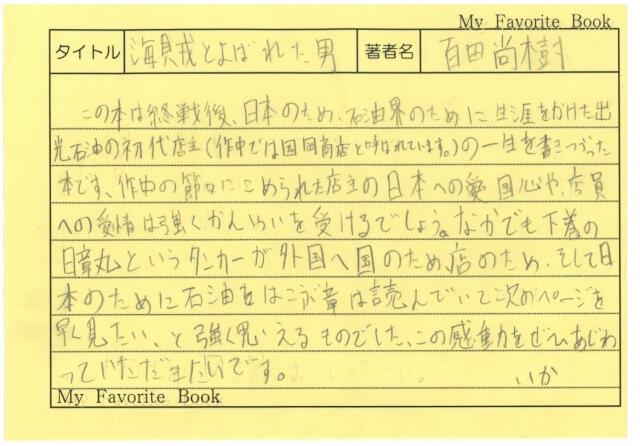 My Favorite Book
タイトル 海賊とよばれた男 著者名 百田尚樹
この本は終戦後、日本のため、石油界のために生涯をかけた出
光石油の初代店主(作中では国岡商店と呼ばれています。)の一生を書きつづった
本です、作中の節々にこめられた店主の日本への愛国心や、店員
への愛情は強くかんめいを受けるでしょう。なかでも下巻の
日章丸というタンカーが外国へ国のため店のため、そして日
本のために石油をはこぶ章は読んでいて次のページを
早く見たい、と強く思いえるものでした、この感動をぜひあじわ
っていただきたいです。 いか
My Favorite Book